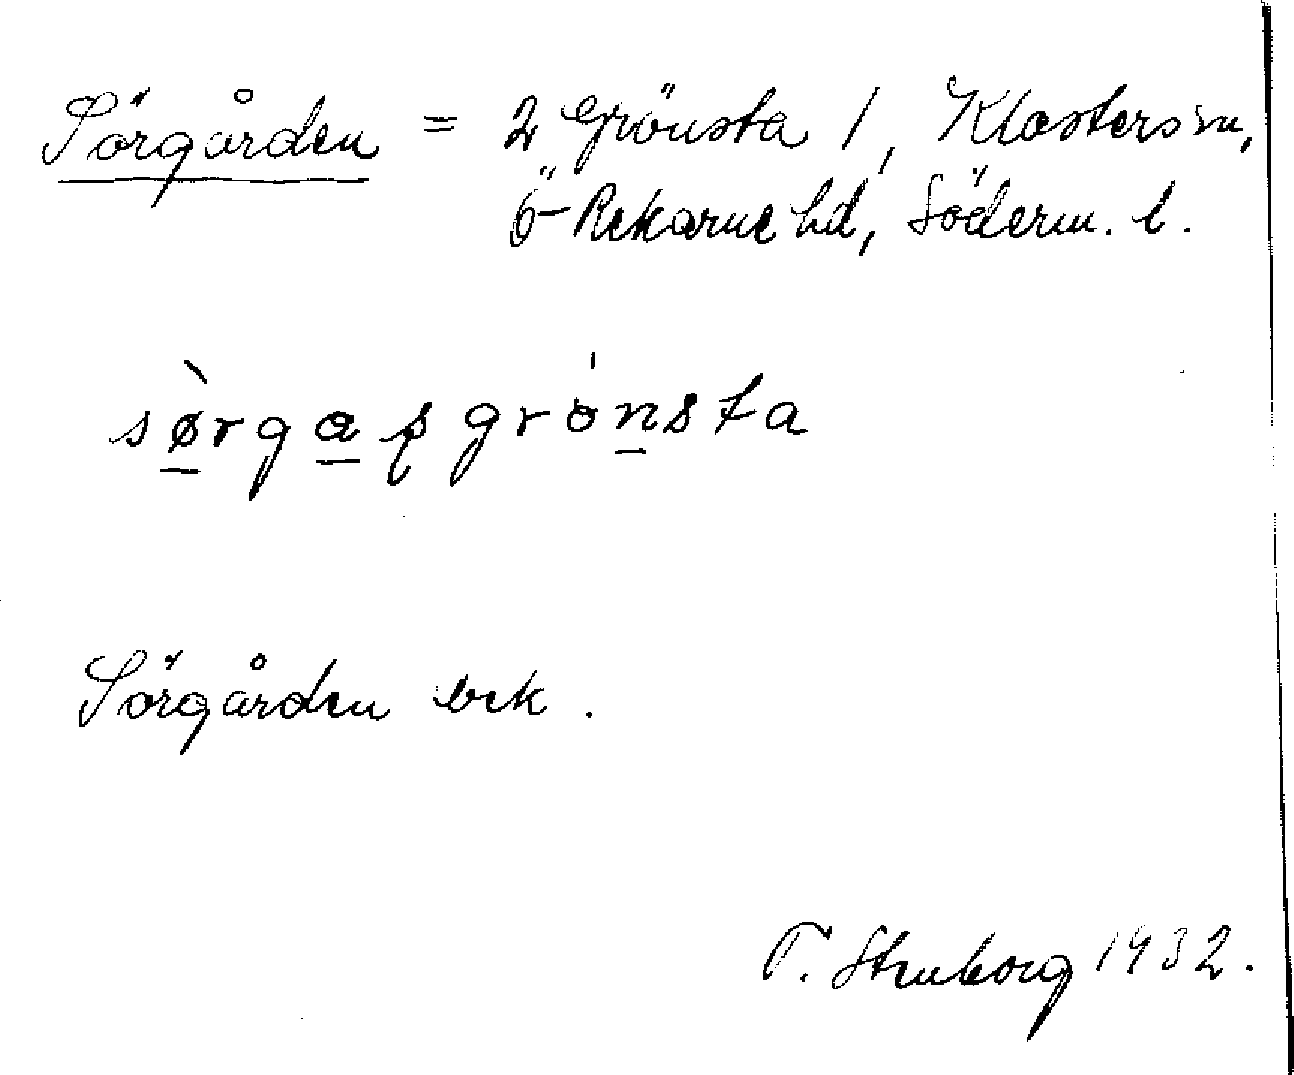 Sörgården = 2 Grönsta 1, Klosters sn,
Ö-Rekarne hd, Söderm. l.
sø̀rgaꞩ grönsta
Sörgården bek.
T. Stenborg 1932.